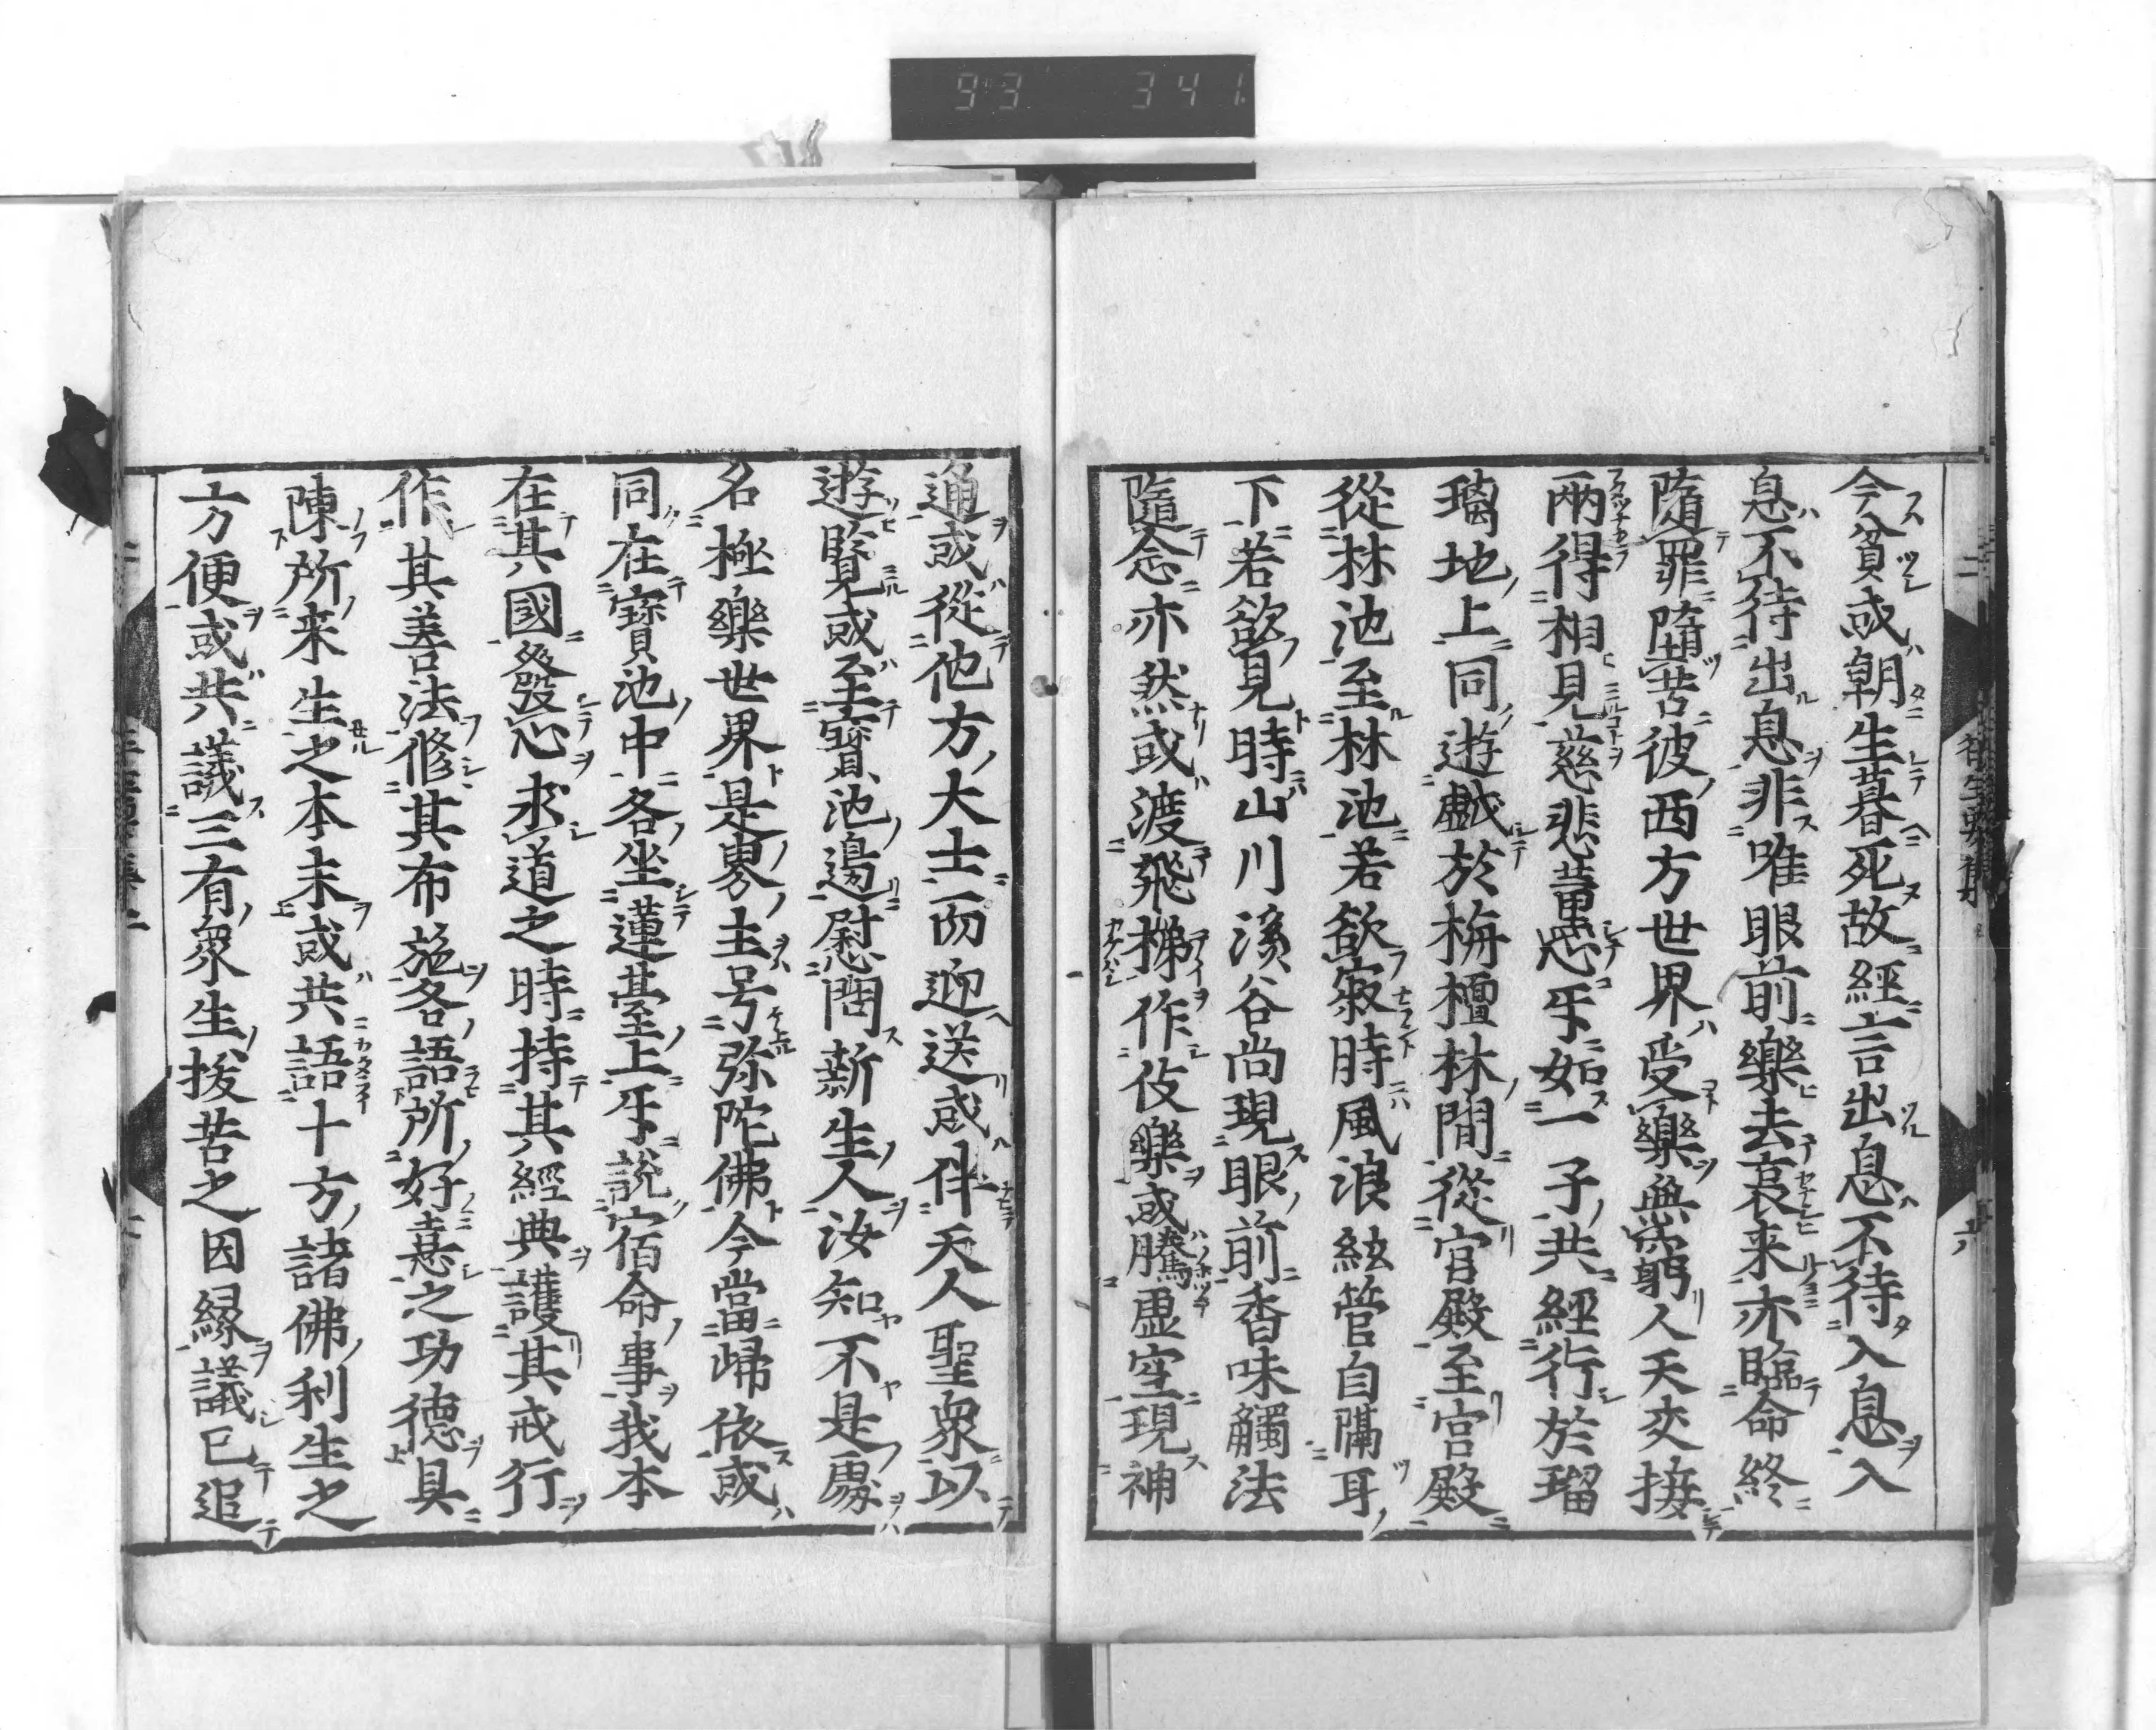 93 341
今貧或朝生暮死故經言出息不待入息入
息不待出息非唯眼前樂去哀来亦臨命終
隨罪墮苦彼西方世界受樂無窮人天交接
兩得相見慈悲薫心互如一子共經行於瑠
璃地上同遊戯於栴檀林間從宮殿至宮殿
從林池至林池若欲寂時風浪絃管自隔耳
下若欲見時山川溪谷尚現眼前香味觸法
隨念亦然或渡飛梯作伎樂或騰虛空現神
通或從他方大士而迎送或伴天人聖衆以
遊覧或至寳池邊慰問新生人汝知不是處
名極樂世界是界主号弥陀佛今當歸依或
同在寳池中各坐蓮臺上互説宿命事我本
在其國發心求道之時持其經典護其戒行
作其善法修其布施各語所好憙之功德具
陳所来生之本末或共語十方諸佛利生之
方便或共議三有衆生抜苦之因縁議已追